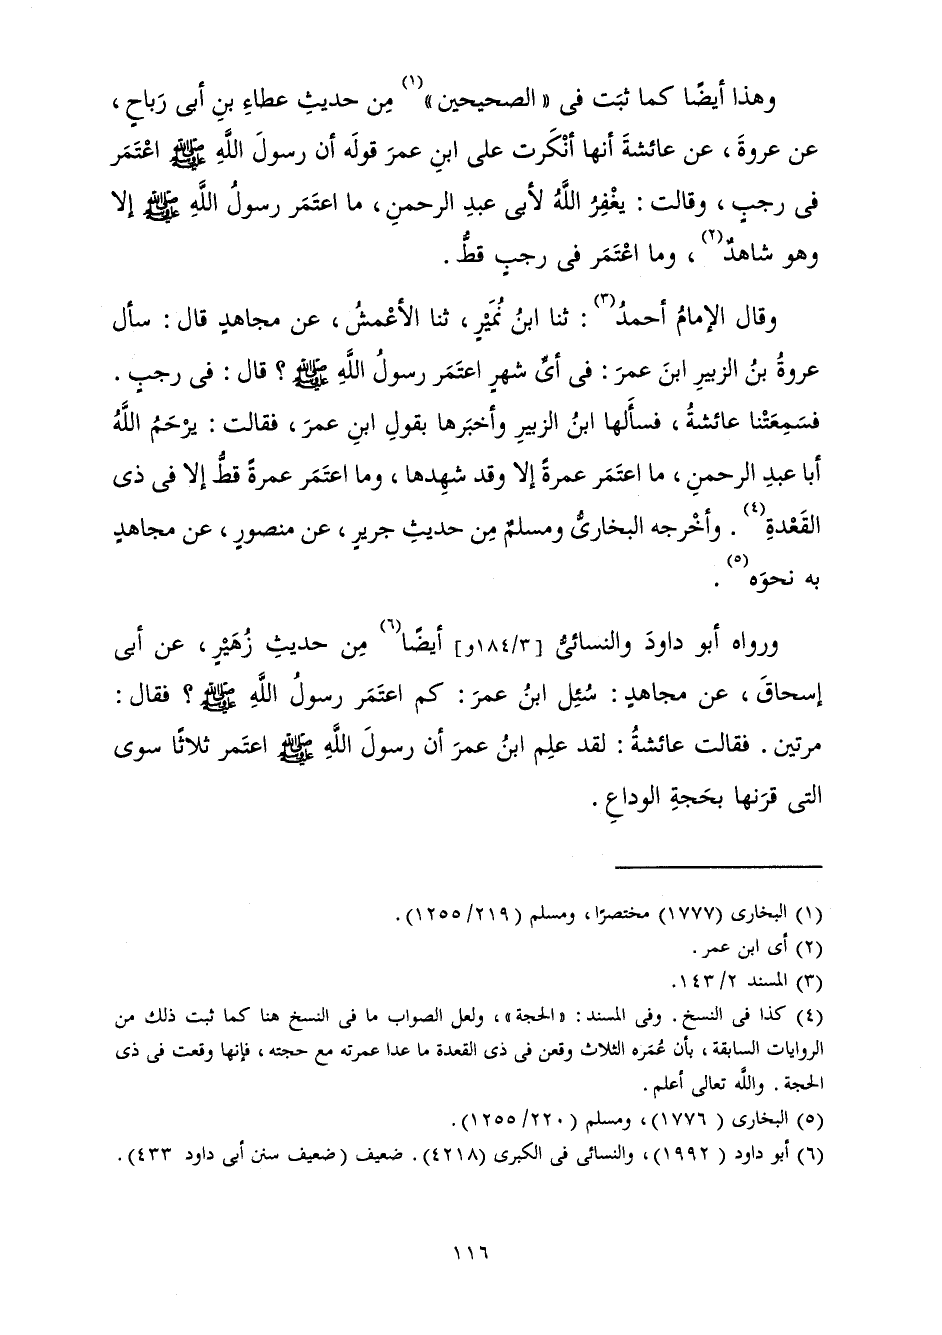 وهذا أيضًا كما ثبَت فى « الصحيحين »(١) مِن حديثِ عطاءِ بنِ أبى رَباحٍ ،
عن عروةَ ، عن عائشةَ أنها أنْكَرت على ابنِ عمرَ قولَه أن رسولَ اللَّهِ ﷺ اعْتَمَر
فى رجبٍ ، وقالت : يغْفِرُ اللَّهُ لأبى عبدِ الرحمنِ ، ما اعتَمَر رسولُ اللَّهِ ﷺ إلا
وهو شاهدٌ(٢) ، وما اعْتَمَر فى رجبٍ قطُّ .
وقال الإمامُ أحمدُ(٣) : ثنا ابنُ نُمَيْرٍ ، ثنا الأعْمشُ ، عن مجاهدٍ قال : سأل
عروةُ بنُ الزبيرِ ابنَ عمرَ : فى أىِّ شهرٍ اعتَمَر رسولُ اللَّهِ ﷺ ؟ قال : فى رجبٍ .
فسَمِعَتْنا عائشةُ ، فسأَلها ابنُ الزبيرِ وأخبَرها بقولِ ابنِ عمرَ ، فقالت : يرْحَمُ اللَّهُ
أبا عبدِ الرحمنِ ، ما اعتَمَر عمرةً إلا وقد شهِدها ، وما اعتَمَر عمرةً قطُّ إلا فى ذى
القَعْدةِ(٤) . وأخْرجه البخارىُّ ومسلمٌ مِن حديثِ جريرٍ ، عن منصورٍ ، عن مجاهدٍ
به نحوَه(٥) .
ورواه أبو داودَ والنسائىُّ [٣/ ١٨٤و] أيضًا(٦) مِن حديثِ زُهَيْرٍ ، عن أبى
إسحاقَ ، عن مجاهدٍ : سُئِل ابنُ عمرَ : كم اعتَمَر رسولُ اللَّهِ ﷺ ؟ فقال :
مرتين . فقالت عائشةُ : لقد علِم ابنُ عمرَ أن رسولَ اللَّهِ ﷺ اعتَمر ثلاثًا سوى
التى قرَنها بحَجةِ الوداعِ .
(١) البخارى (١٧٧٧) مختصرًا ، ومسلم (٢١٩/ ١٢٥٥).
(٢) أى ابن عمر .
(٣) المسند ٢/ ١٤٣.
(٤) كذا فى النسخ . وفى المسند : «الحجة» ، ولعل الصواب ما فى النسخ هنا كما ثبت ذلك من
الروايات السابقة ، بأن عُمَره الثلاث وقعن فى ذى القعدة ما عدا عمرته مع حجته ، فإنها وقعت فى ذى
الحجة . واللَّه تعالى أعلم .
(٥) البخارى ( ١٧٧٦) ، ومسلم (٢٢٠/ ١٢٥٥).
(٦) أبو داود ( ١٩٩٢) ، والنسائى فى الكبرى (٤٢١٨). ضعيف (ضعيف سنن أبى داود ٤٣٣).
١١٦